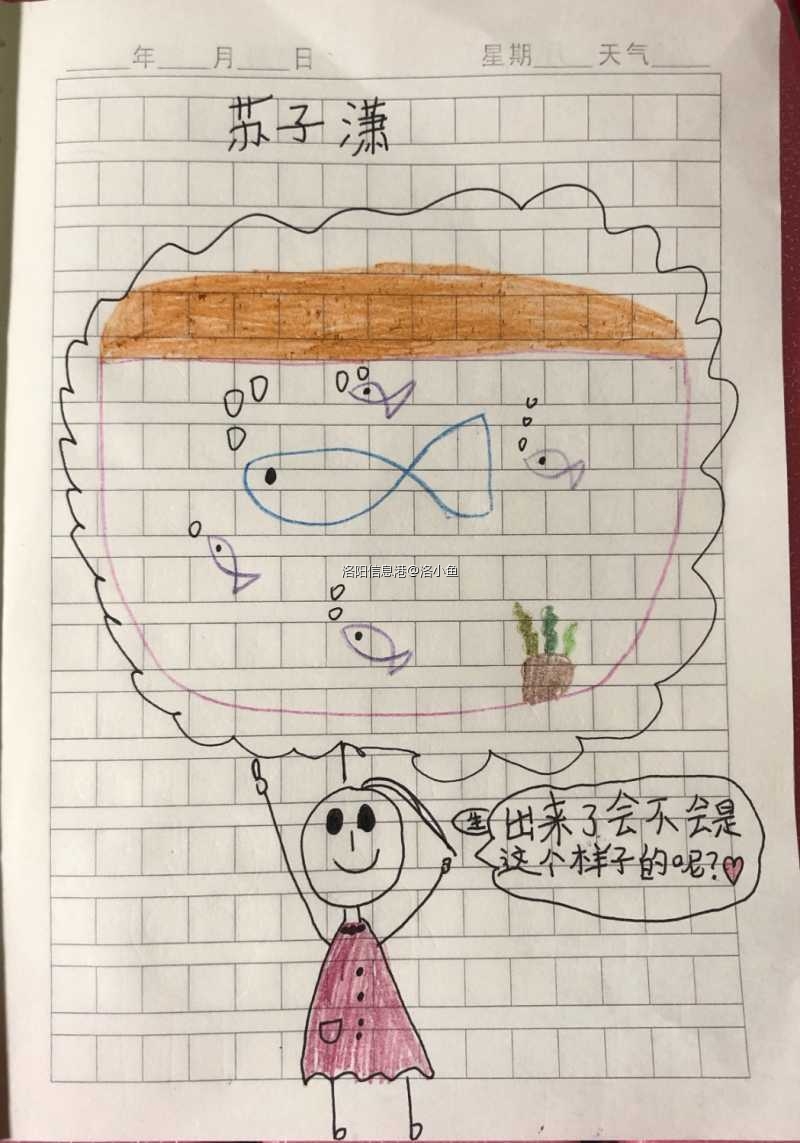 ____年____月____日 星期____天气____
苏子潇
洛阳信息港@洛小鱼
生出来了会不会是
这个样子的呢?